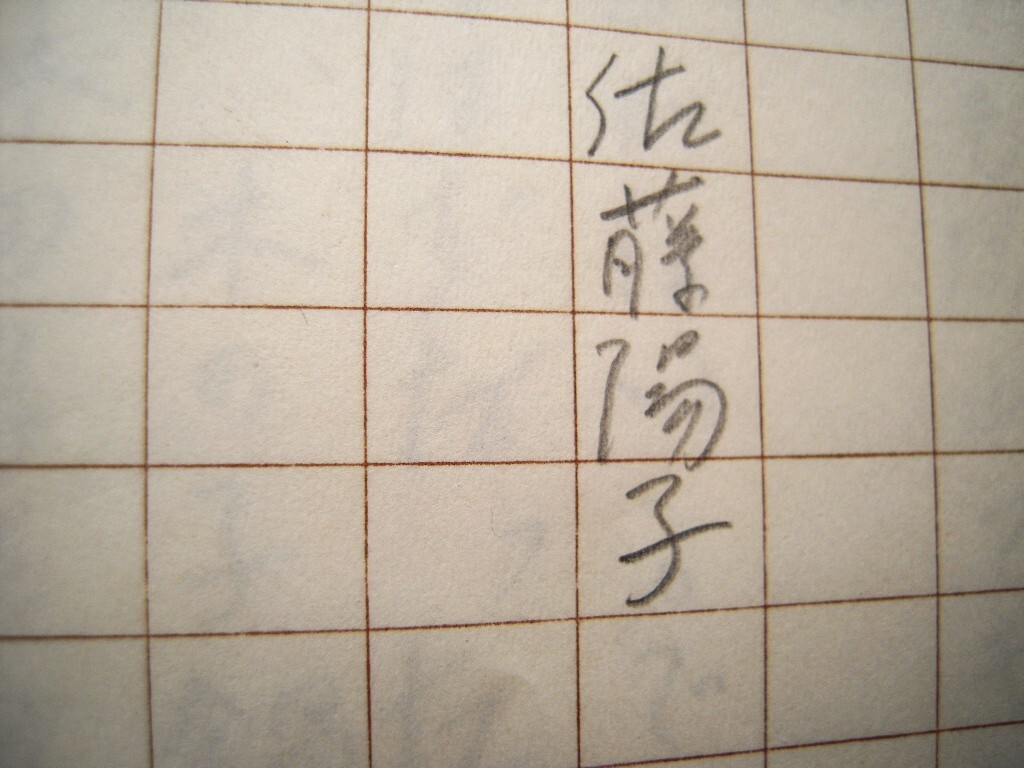 佐藤陽子